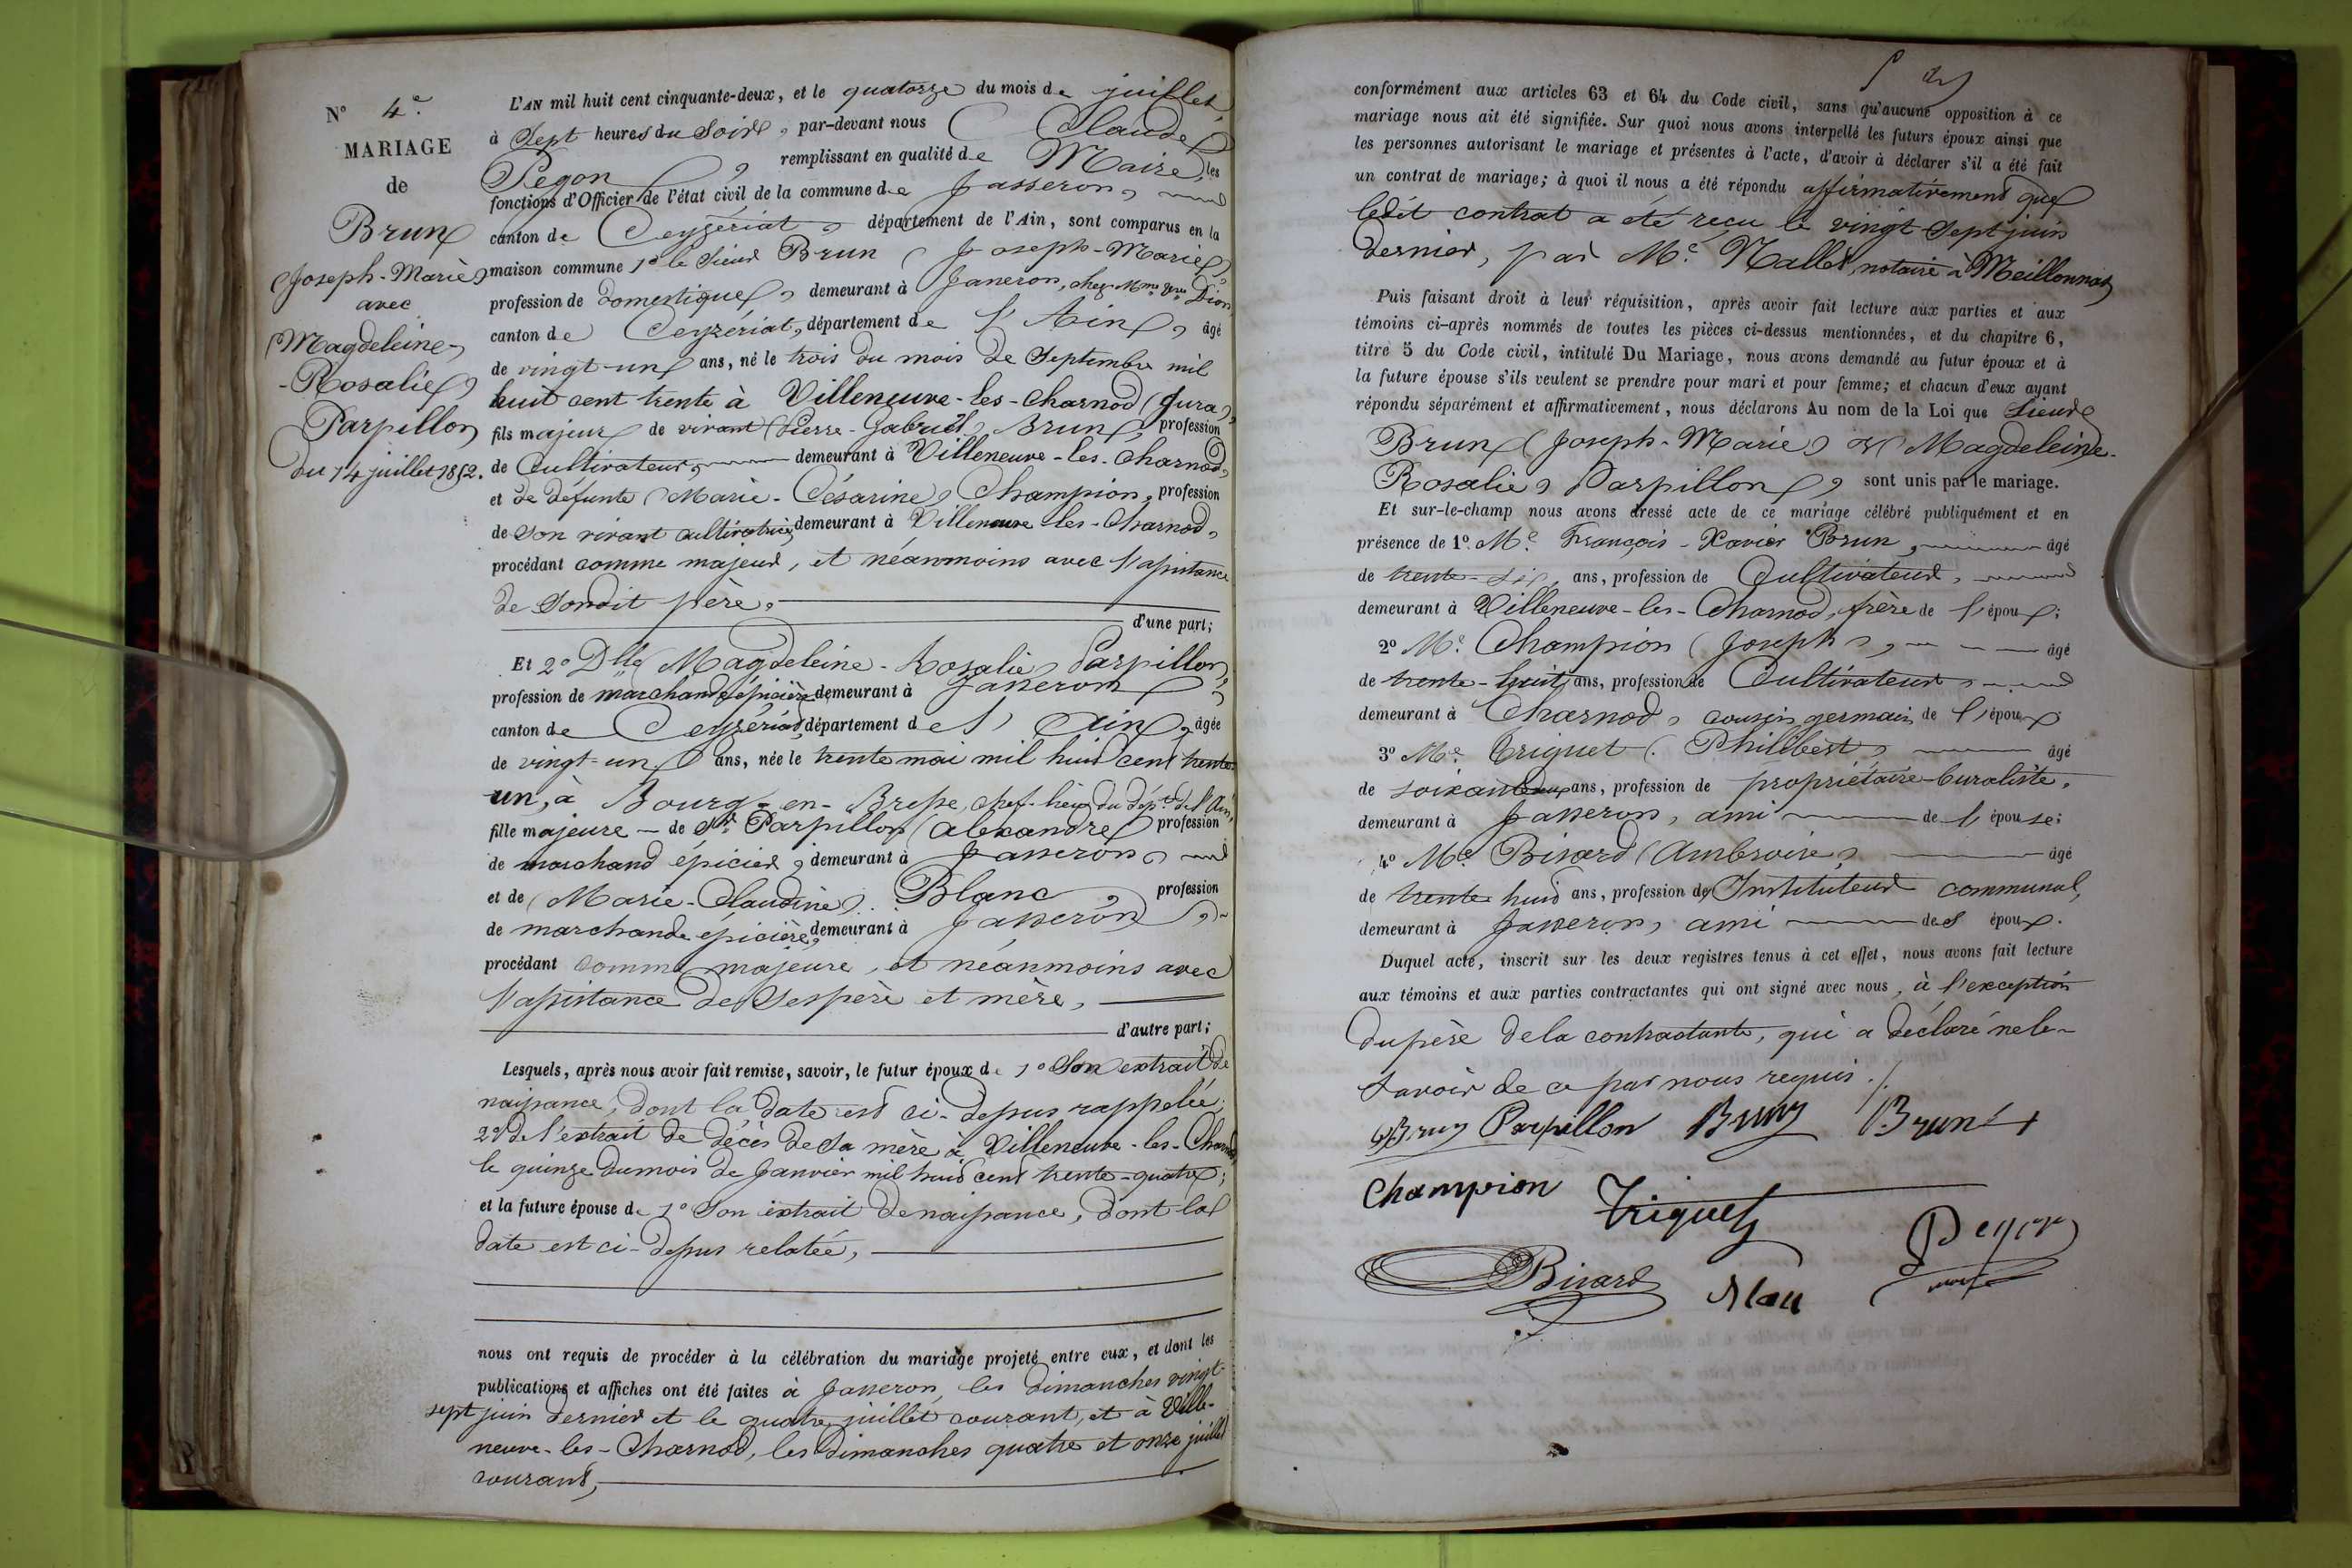 N° 4e.
MARIAGE
de
Brun
(Joseph-Marie)
avec
(Magdeleine-
-Rosalie)
Parpillon
du 14 juillet 1852.
L'AN mil huit cent cinquante-deux, et le quatorze du mois de juillet,
à Sept heures du Soir, par-devant nous (Claude)
Pegon, remplissant en qualité de Maire, les
fonctions d'Officier de l'état civil de la commune de Jasseron,
canton de Ceyzériat, département de l'Ain, sont comparus en la
maison commune 1° le Sieur Brun (Joseph-Marie),
profession de domestique, demeurant à Jasseron, chez Mme Vve
canton de Ceyzériat, département de l'Ain, âgé
de vingt-un ans, né le trois du mois de Septembre mil
huit cent trente à Villeneuve-les-Charnod (Jura),
fils majeur de vivant (Pierre-Gabriel) Brun, profession
de Cultivateur, demeurant à Villeneuve-les-Charnod,
et de défunte (Marie-Césarine) Champion, profession
de Son vivant cultivatrice, demeurant à Villeneuve-les-Charnod,
procédant comme majeur, et néanmoins avec l'assistance
de Sondit père.
d'une part;
Et 2° Dlle (Magdeleine-Rosalie) Parpillon,
profession de marchande épicière demeurant à Jasseron,
canton de Ceyzériat, département de l'Ain, âgée
de vingt-un ans, née le trente mai mil huit cent trente-
un, à Bourg-en-Bresse, chef-lieu du dépt. de l'Ain,
fille majeure - de Sr. Parpillon (Alexandre) profession
de marchand épicier, demeurant à Jasseron,
et de (Marie-Claudine) Blanc, profession
de marchande épicière, demeurant à Jasseron,
procédant comme majeure, et néanmoins avec
l'assistance de Ses père et mère,
d'autre part;
Lesquels, après nous avoir fait remise, savoir, le futur époux de 1° Son extrait de
naissance, dont la date est ci-dessus rappelée;
2° de l'extrait de décès de Sa mère à Villeneuve-les-Charnod,
le quinze du mois de Janvier mil huit cent trente-quatre;
et la future épouse de 1° Son extrait de naissance, dont la
date est ci-dessus relatée,
nous ont requis de procéder à la célébration du mariage projeté entre eux, et dont les
publications et affiches ont été faites à Jasseron, les dimanches vingt-
sept juin dernier et le quatre juillet courant, et à Ville-
neuve-les-Charnod, les dimanches quatre et onze juillet
courant,
conformément aux articles 63 et 64 du Code civil, sans qu'aucune opposition à ce
mariage nous ait été signifiée. Sur quoi nous avons interpellé les futurs époux ainsi que
les personnes autorisant le mariage et présentes à l'acte, d'avoir à déclarer s'il a été fait
un contrat de mariage; à quoi il nous a été répondu affirmativement que
ledit contrat a été reçu le vingt Sept juin
dernier, par Me. Mallet, notaire à Meillonnas
Puis faisant droit à leur réquisition, après avoir fait lecture aux parties et aux
témoins ci-après nommés de toutes les pièces ci-dessus mentionnées, et du chapitre 6,
titre 5 du Code civil, intitulé Du Mariage, nous avons demandé au futur époux et à
la future épouse s'ils veulent se prendre pour mari et pour femme; et chacun d'eux ayant
répondu séparément et affirmativement, nous déclarons Au nom de la Loi que Sieur
Brun (Joseph-Marie) et (Magdeleine-
Rosalie) Parpillon, sont unis par le mariage.
Et sur-le-champ nous avons dressé acte de ce mariage célébré publiquement et en
présence de 1° Me. François-Xavier Brun, âgé
de trente-six, ans, profession de Cultivateur,
demeurant à Villeneuve-les-Charnod, frère de l'époux;
2° Me. Champion (Joseph), âgé
de trente-huit ans, profession de Cultivateur,
demeurant à Charnod, cousin germain de l'époux;
3° Me. Triquet (Philibert), âgé
de soixante ans, profession de propriétaire-buraliste,
demeurant à Jasseron, ami de l'épouse;
4° Me. Bizard (Ambroise), âgé
de trente huit ans, profession de Instituteur communal,
demeurant à Jasseron, ami des époux.
Duquel acte, inscrit sur les deux registres tenus à cet effet, nous avons fait lecture
aux témoins et aux parties contractantes qui ont signé avec nous, à l'exception
du père de la contractante, qui a déclaré ne le
Savoir de ce par nous requis ./.
Brun Parpillon Brun Brun
Champion Triquet
Bizard Pegon